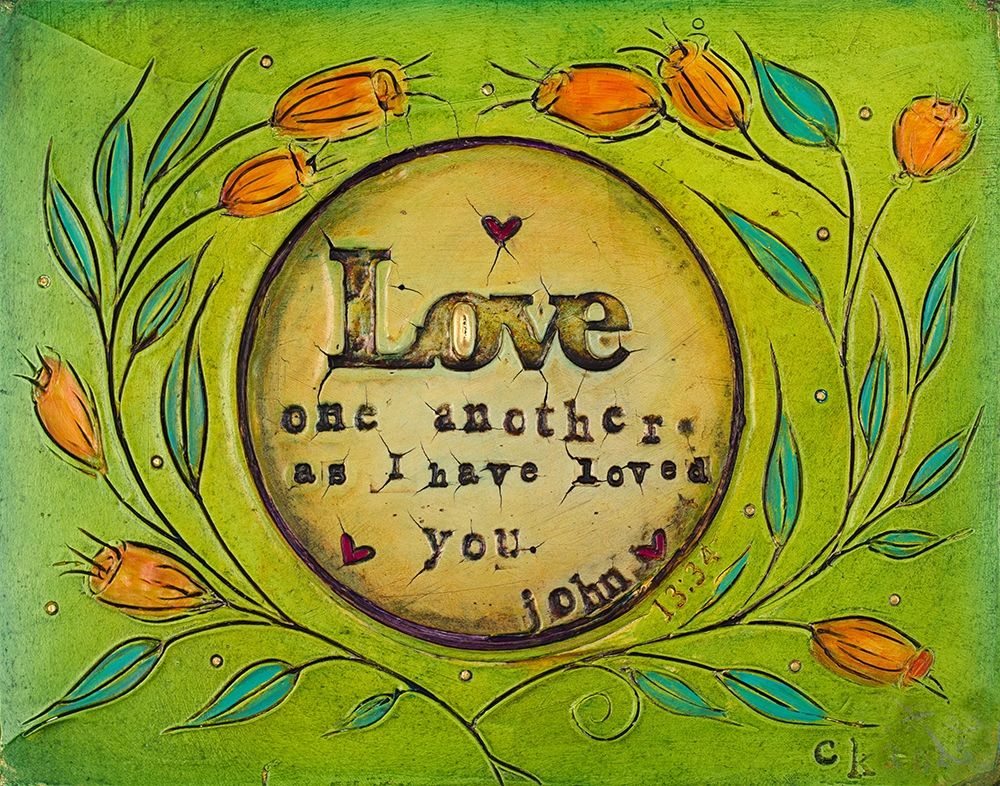 Love
one another.
as I have loved
you.
john
13:34
ck